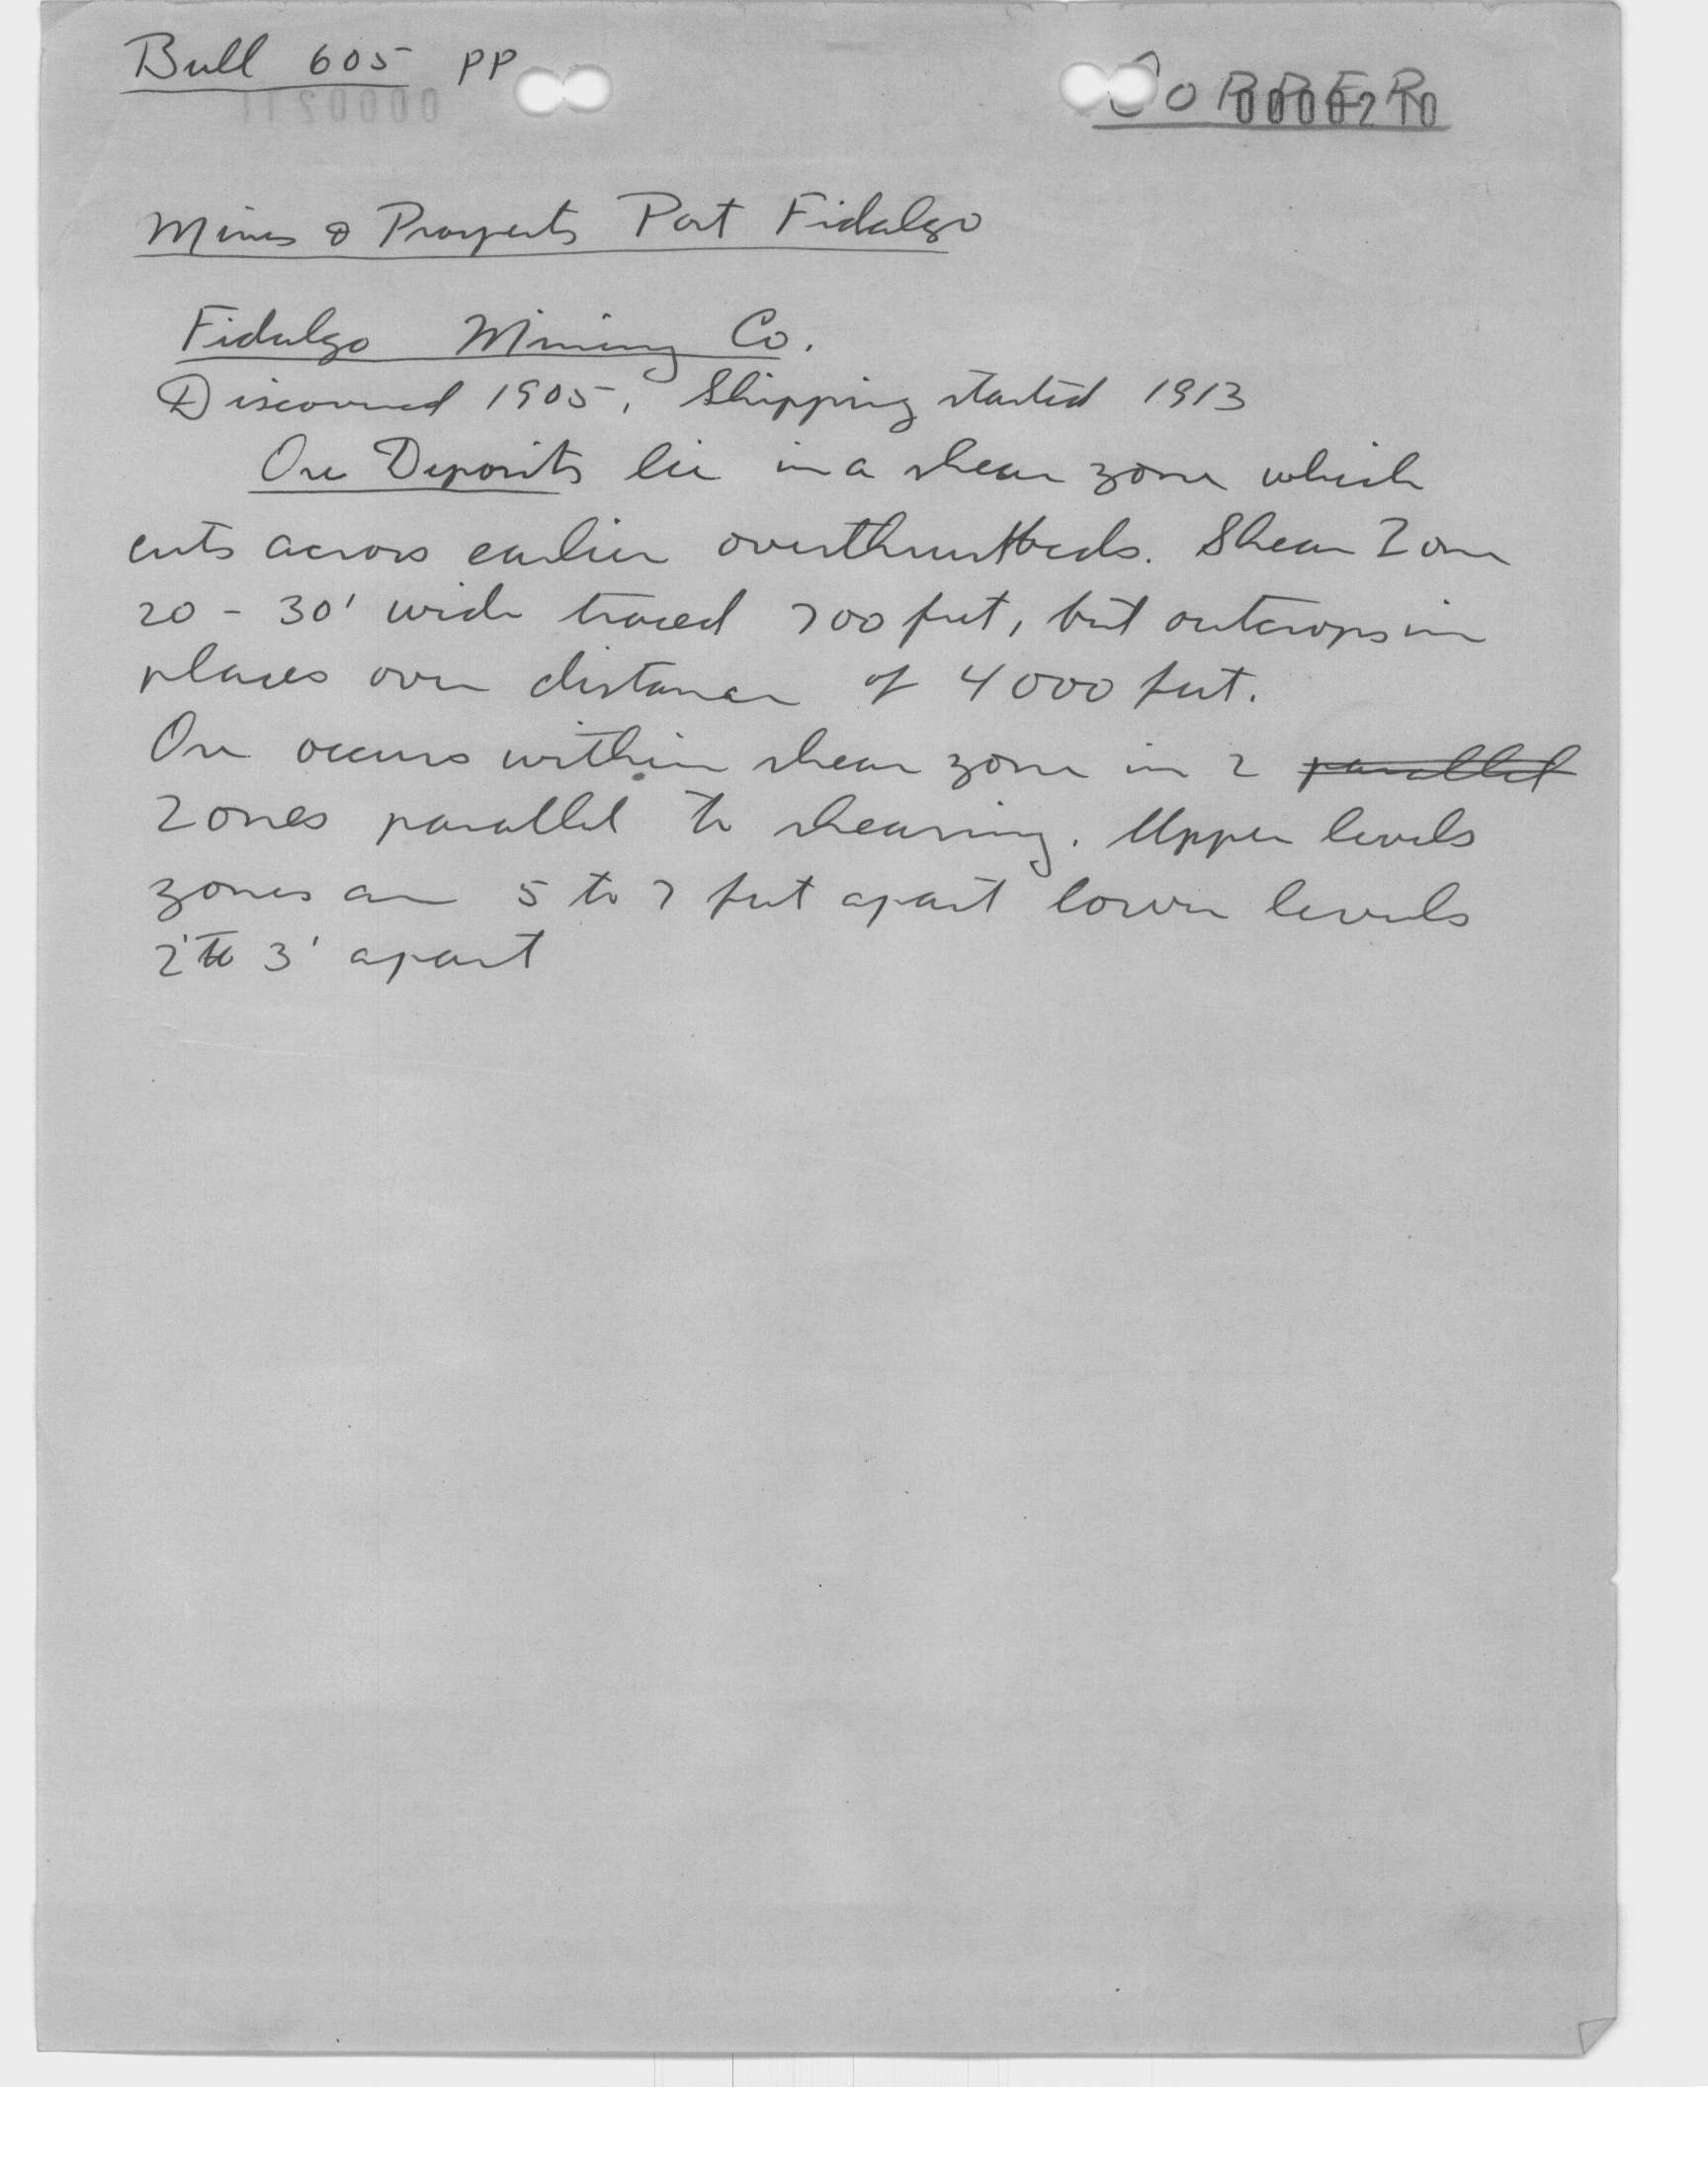 Bull 605 PP
COPPER
0000210
Mines & Prospects Port Fidalgo
Fidalgo Mining Co.
Discovered 1905, Shipping started 1913
Ore Deposits lie in a shear zone which
cuts across earlier overthrust beds. Shear Zone
20 - 30' wide traced 700 feet, but outcrops in
places over distance of 4000 feet.
Ore occurs within shear zone in 2 parallel
Zones parallel to shearing. Upper levels
zones are 5 to 7 feet apart lower levels
2' to 3' apart